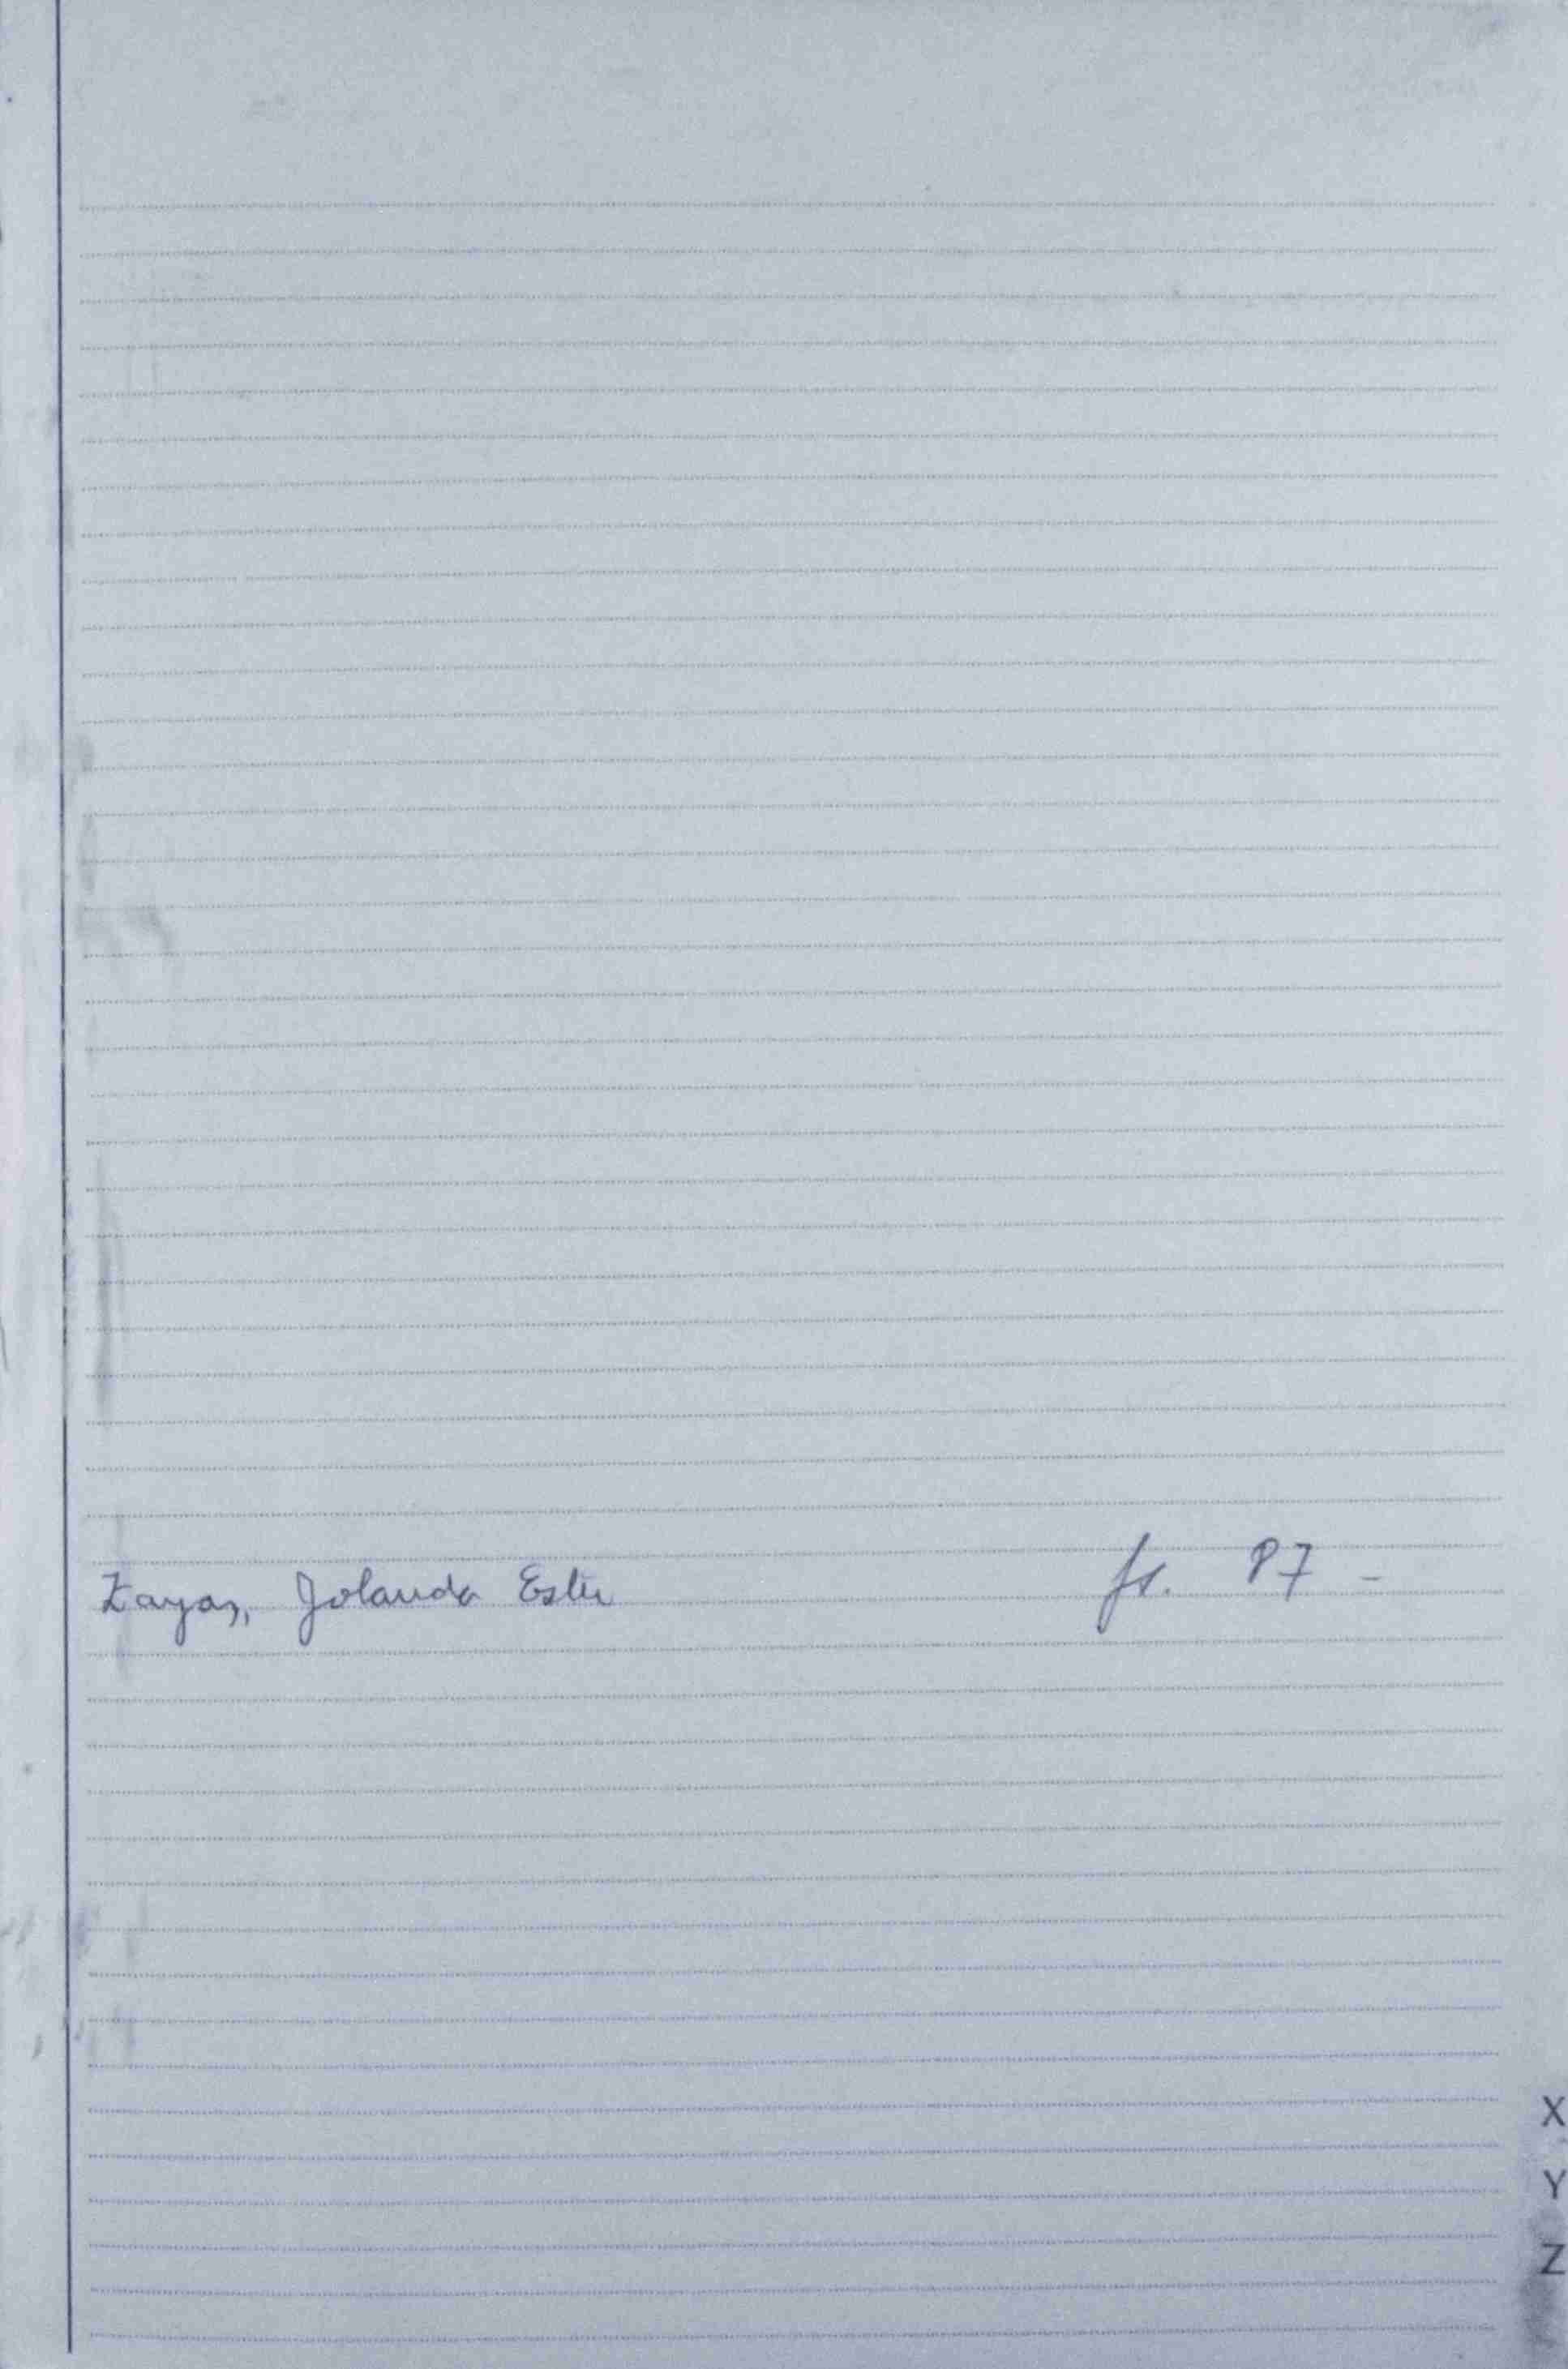 Zayas, Jolanda Ester fs. 87 -
X
Y
Z